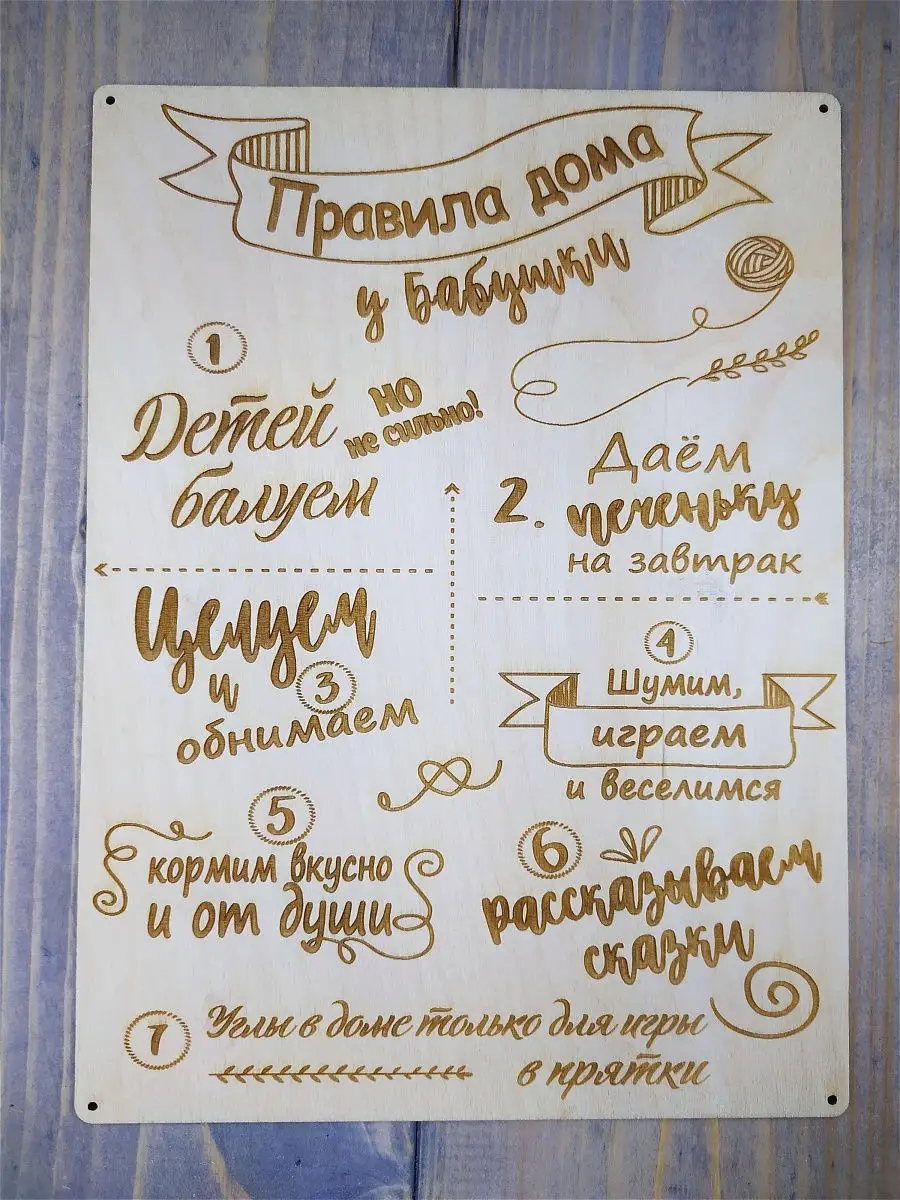 Правила дома
у Бабушки
1
Детей
балуем
но
не сильно!
2.
Даём
печеньку
на завтрак
Целуем
и
3
обнимаем
4
Шумим,
играем
и веселимся
5
кормим вкусно
и от души
6
рассказываем
сказки
7
Углы в доме только для игры
в прятки